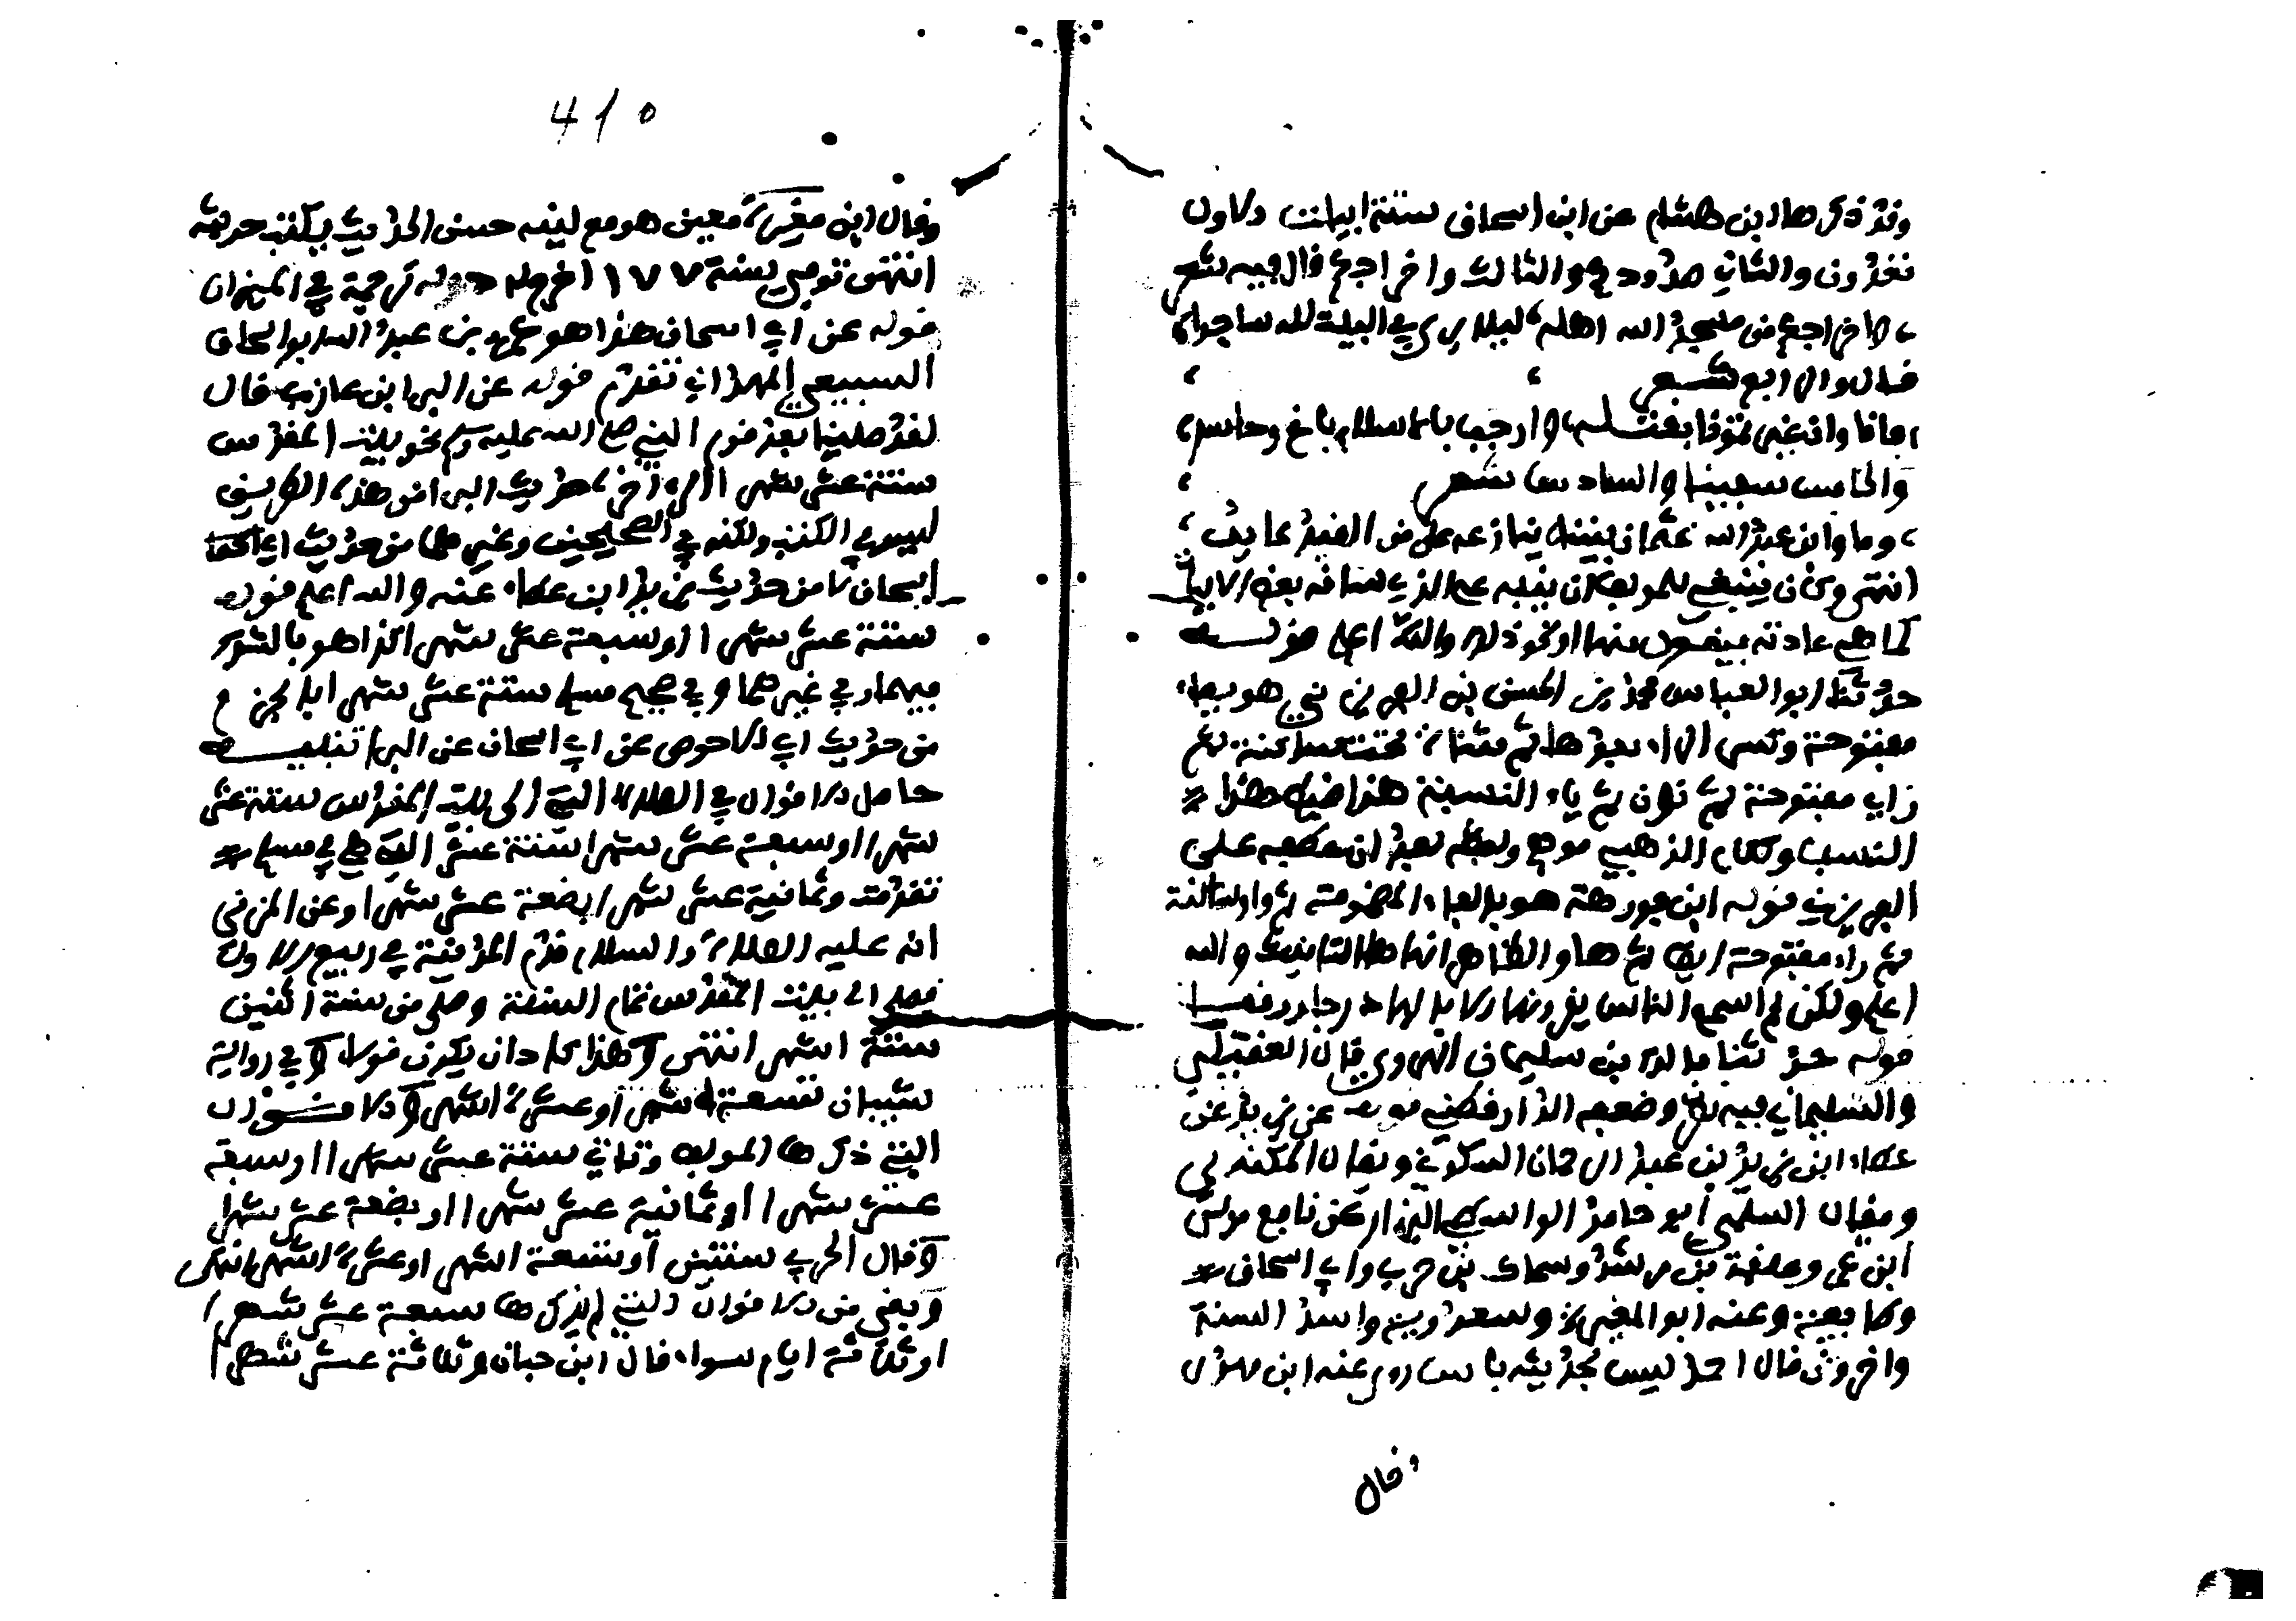 وقد ذكرها ابن هشام عن ابن اسحاق ستة ابيات الاول
تقدم والثاني والثالث واخر اجع قال فيه شعر
من مسجد الله اهله لئلا يرى في البيت لله ساجدا
قال والرابع شعر
فانا وان عيرتمونا بقتله وارجف بالاسلام باغ وحاسد
والخامس سقينا والسادس شعر
وما وابن عبد الله عثمان بيننا ينازعه غل من القد عاند
انتهى وكان ينبغي للمولف ان ينبه على الذي ساقه بعض الابيات
كما هي عادته بيقول منها او نحو ذلك والله اعلم قوله
حدثنا ابو العباس محمد بن الحسن بن الفريزني هو بفاء
مفتوحة وكسر الراء بعدها ثم مثناة تحت ساكنة ثم
زاي مفتوحة ثم نون ثم ياء النسبة هذا هذا
النسب وكلام الذهبي ولفظه بعد ان عطفه على
الفريزني قوله ابن فورهة هو بالفاء المضمومة ثم واو ساكنة
ثم راء مفتوحة ثم هاء والظاهر انها هاء التانيث والله
اعلم ولكن لم اسمع الناس
قوله حدثنا خالد بن سليمان الهروي قال العقيلي
والسليماني فيه نظر وضعفه الدارقطني عن يزيد عن
عطاء ابن يزيد بن عبد الرحمان السكوني ويقال الكندي
ويقال السلمي ابو خالد الواسطي البزار عن نافع مولى
ابن عمر وعلقمة بن مرثد وسماك بن حرب وابي اسحاق
وطائفة وعنه ابو المغيرة وسعدويه واسد السنة
واخرون قال احمد ليس بحديثه باس روى عنه ابن مهدي
وقال
410
وقال ابن معين هو مع لينه حسن الحديث يكتب حديثه
انتهى توفي سنة ١٧٧ اخرج له د وله ترجمة في الميزان
قوله عن ابي اسحاق هذا هو عمرو بن عبد الله ابو اسحاق
السبيعي الهمداني تقدم قوله عن البراء بن عازب قال
لقد صلينا بعد قدوم النبي صلى الله عليه وسلم نحو بيت المقدس
ستة عشر شهرا الى اخره حديث البراء من هذه الطريق
ليس في الكتب ولكنه في الصحيحين وغيرهما من حديث ابي
اسحاق لا من حديث يزيد ابن عطاء عنه والله اعلم قوله
ستة عشر شهرا او سبعة عشر شهرا كذا هو بالشك
فيهما وفي غيرهما وفي صحيح مسلم ستة عشر شهرا بالجزم
من حديث ابي الاحوص عن ابي اسحاق عن البراء تنبيه
حاصل الاقوال في الصلاة التي الى بيت المقدس ستة عشر
شهرا او سبعة عشر شهرا ستة عشر التي هي في مسلم
تقدمت وثمانية عشر شهرا بضعة عشر شهرا وعن المزني
انه عليه الصلاة والسلام قدم المدينة في ربيع الاول
فصلى الى بيت المقدس تمام السنة وصلى من سنة اثنين
ستة اشهر انتهى وهذا كاد ان يكون قولا وفي رواية
شيبان تسعة اشهر او عشرة اشهر والاقوال
التي ذكرها المولف وتاتي ستة عشر شهرا او سبعة
عشر شهرا او ثمانية عشر شهرا او بضعة عشر شهرا
وقال الحربي سنتين او تسعة اشهر او عشرة اشهر انتهى
وبقي من الاقوال التي لم يذكرها سبعة عشر شهرا
او ثلاثة ايام سواء قال ابن حبان وثلاثة عشر شهرا